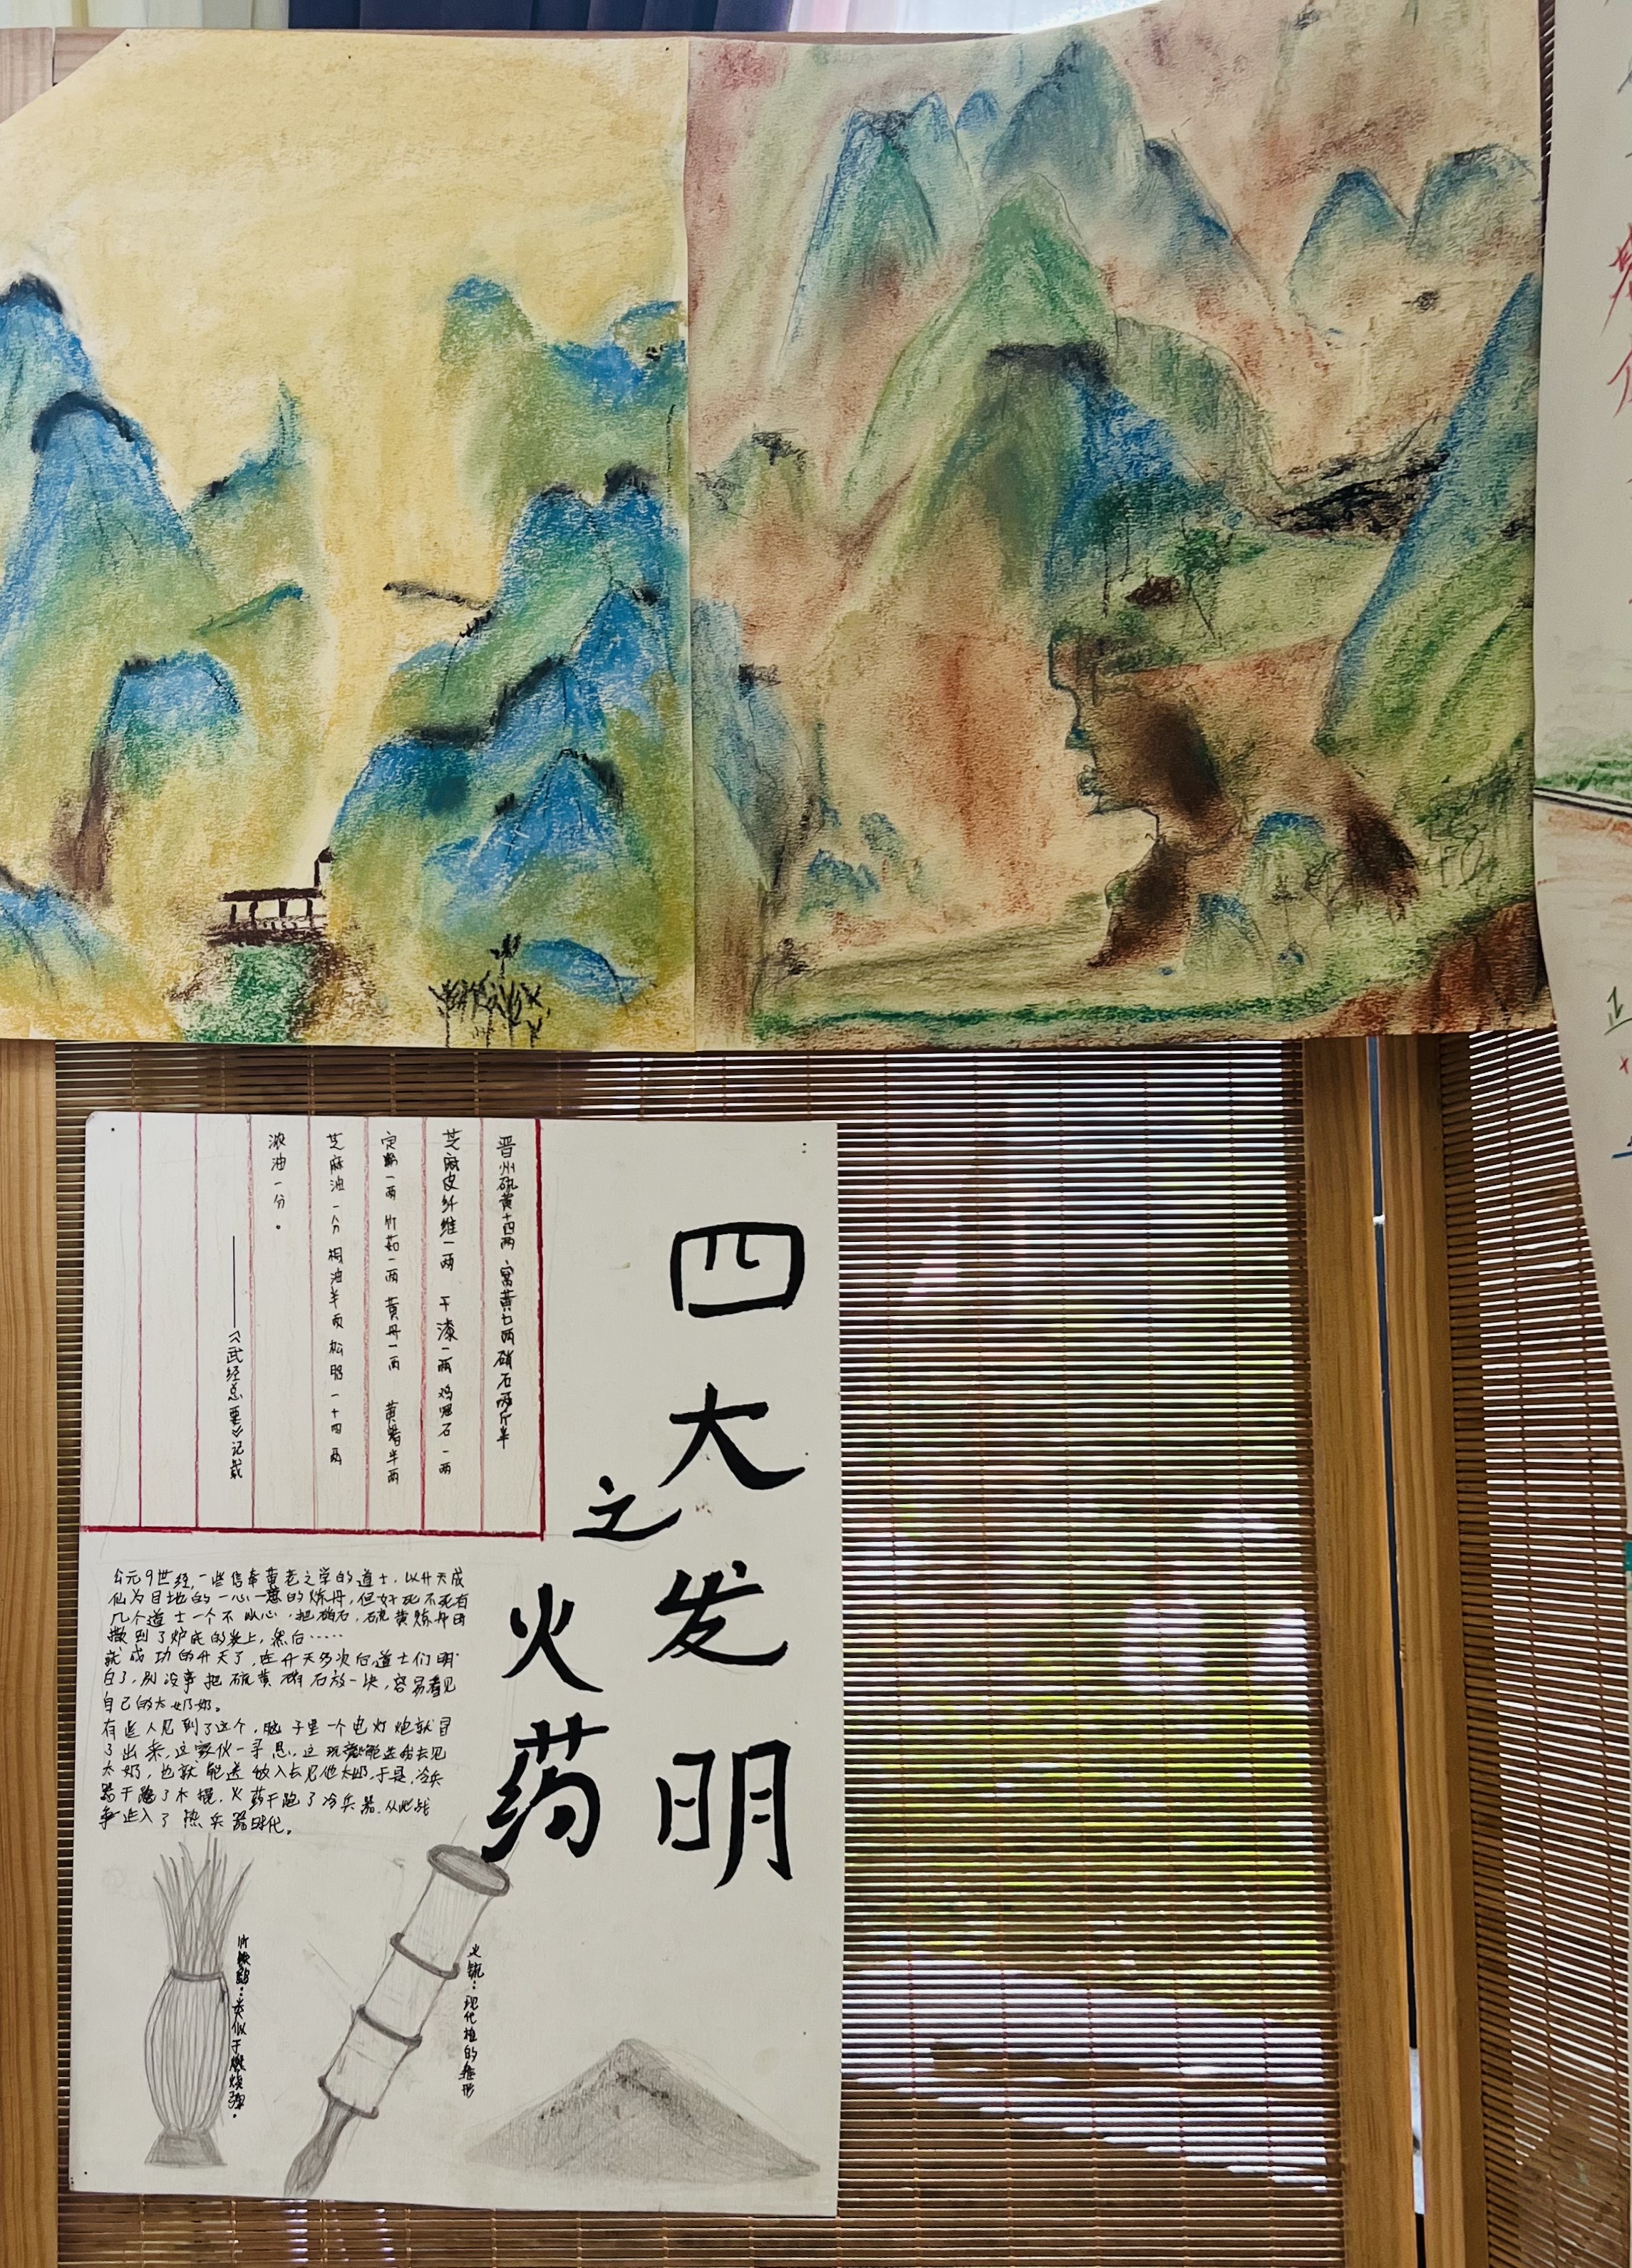 四大发明
之
火药
晋州硫黄十四两、窝黄七两硝石两斤半
芝麻皮纤维一两 干漆一两 鸡啊石一两
定粉一两 竹茹一两 黄丹一两 黄蜡半两
芝麻油一分 桐油半两 松脂一十四两
浓油一分。
——《武经总要》记载
公元9世经,一些信奉黄老之学的道士,以升天成
仙为目地的一心一意的炼丹,但好死不死有
几个道士一个不小心,把硝石,硫黄炼丹时
撒到了炉底的炭上,然后……
就成功的升天了,在升天多次后道士们明
白了,别没事把硫黄硝石放一块,容易看见
自己的太奶奶。
有些人见到了这个,脑子里一个电灯炮就冒
了出来,这家伙一寻思,这玩意能送我去见
太奶,也就能送敌人去见他太奶,于是,冷兵
器干跑了木棍,火药干跑了冷兵器,从此战
争进入了热兵器时代。
类似于燃烧弹。
火铳:现代枪的雏形
正